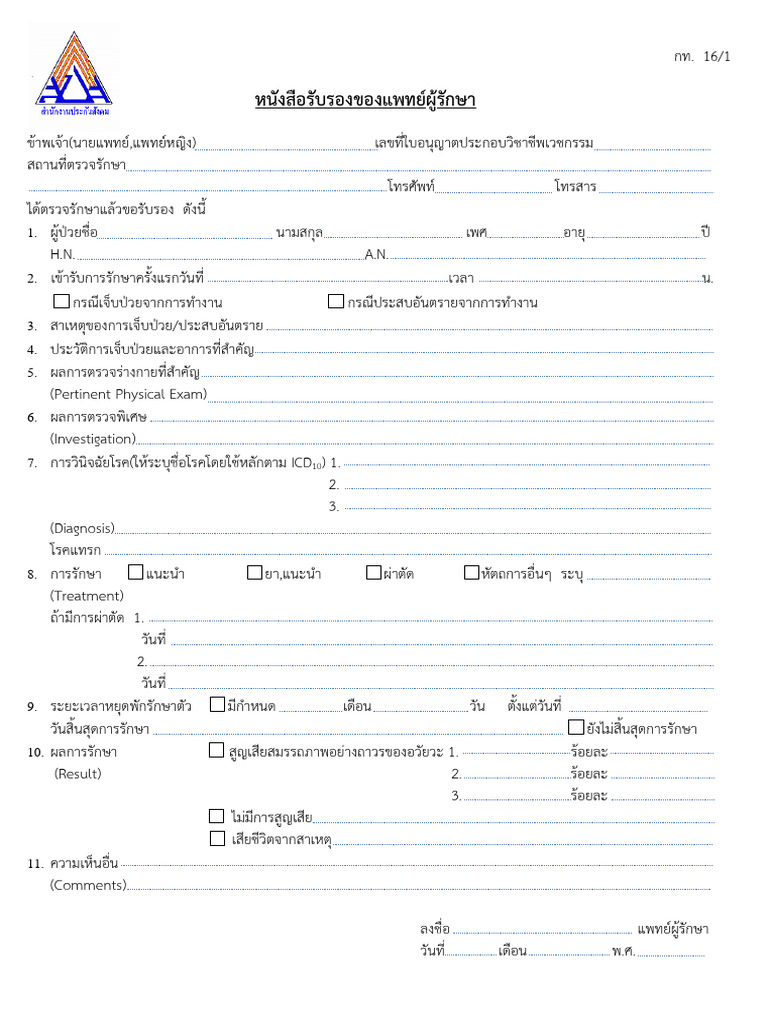 กท. 16/1
สำนักงานประกันสังคม
หนังสือรับรองของแพทย์ผู้รักษา
ข้าพเจ้า(นายแพทย์,แพทย์หญิง) เลขที่ใบอนุญาตประกอบวิชาชีพเวชกรรม
สถานที่ตรวจรักษา
โทรศัพท์ โทรสาร
ได้ตรวจรักษาแล้วขอรับรอง ดังนี้
1. ผู้ป่วยชื่อ นามสกุล เพศ อายุ ปี
H.N. A.N.
2. เข้ารับการรักษาครั้งแรกวันที่ เวลา น.
กรณีเจ็บป่วยจากการทำงาน กรณีประสบอันตรายจากการทำงาน
3. สาเหตุของการเจ็บป่วย/ประสบอันตราย
4. ประวัติการเจ็บป่วยและอาการที่สำคัญ
5. ผลการตรวจร่างกายที่สำคัญ
(Pertinent Physical Exam)
6. ผลการตรวจพิเศษ
(Investigation)
7. การวินิจฉัยโรค(ให้ระบุชื่อโรคโดยใช้หลักตาม ICD10) 1.
2.
3.
(Diagnosis)
โรคแทรก
8. การรักษา แนะนำ ยา,แนะนำ ผ่าตัด หัตถการอื่นๆ ระบุ
(Treatment)
ถ้ามีการผ่าตัด 1.
วันที่
2.
วันที่
9. ระยะเวลาหยุดพักรักษาตัว มีกำหนด เดือน วัน ตั้งแต่วันที่
วันสิ้นสุดการรักษา ยังไม่สิ้นสุดการรักษา
10. ผลการรักษา สูญเสียสมรรถภาพอย่างถาวรของอวัยวะ 1. ร้อยละ
(Result) 2. ร้อยละ
3. ร้อยละ
ไม่มีการสูญเสีย
เสียชีวิตจากสาเหตุ
11. ความเห็นอื่น
(Comments)
ลงชื่อ แพทย์ผู้รักษา
วันที่ เดือน พ.ศ.